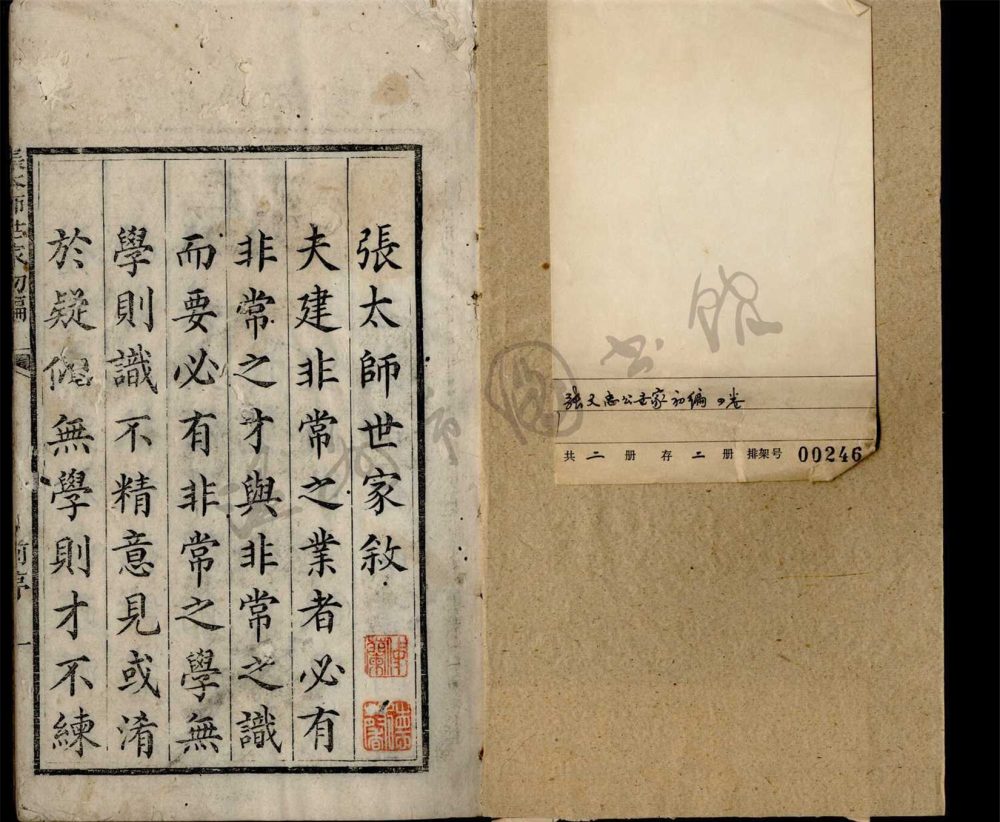 張太師世家敘
夫建非常之業者必有
非常之才與非常之識
而要必有非常之學無
學則識不精意見或淆
於疑似無學則才不練
張太師世家初編
前序
一
张文忠公世家初编 四卷
共 二 册 存 二 册 排架号 00246
图书馆